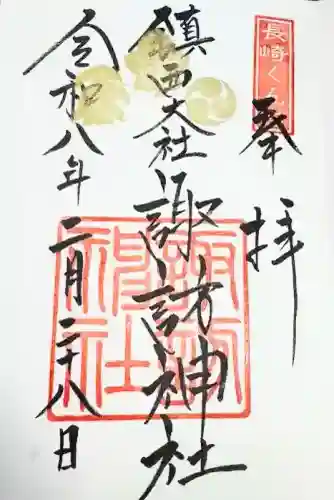 長崎くんち
奉拝
鎮西大社諏訪神社
諏訪神社
令和八年二月二十八日